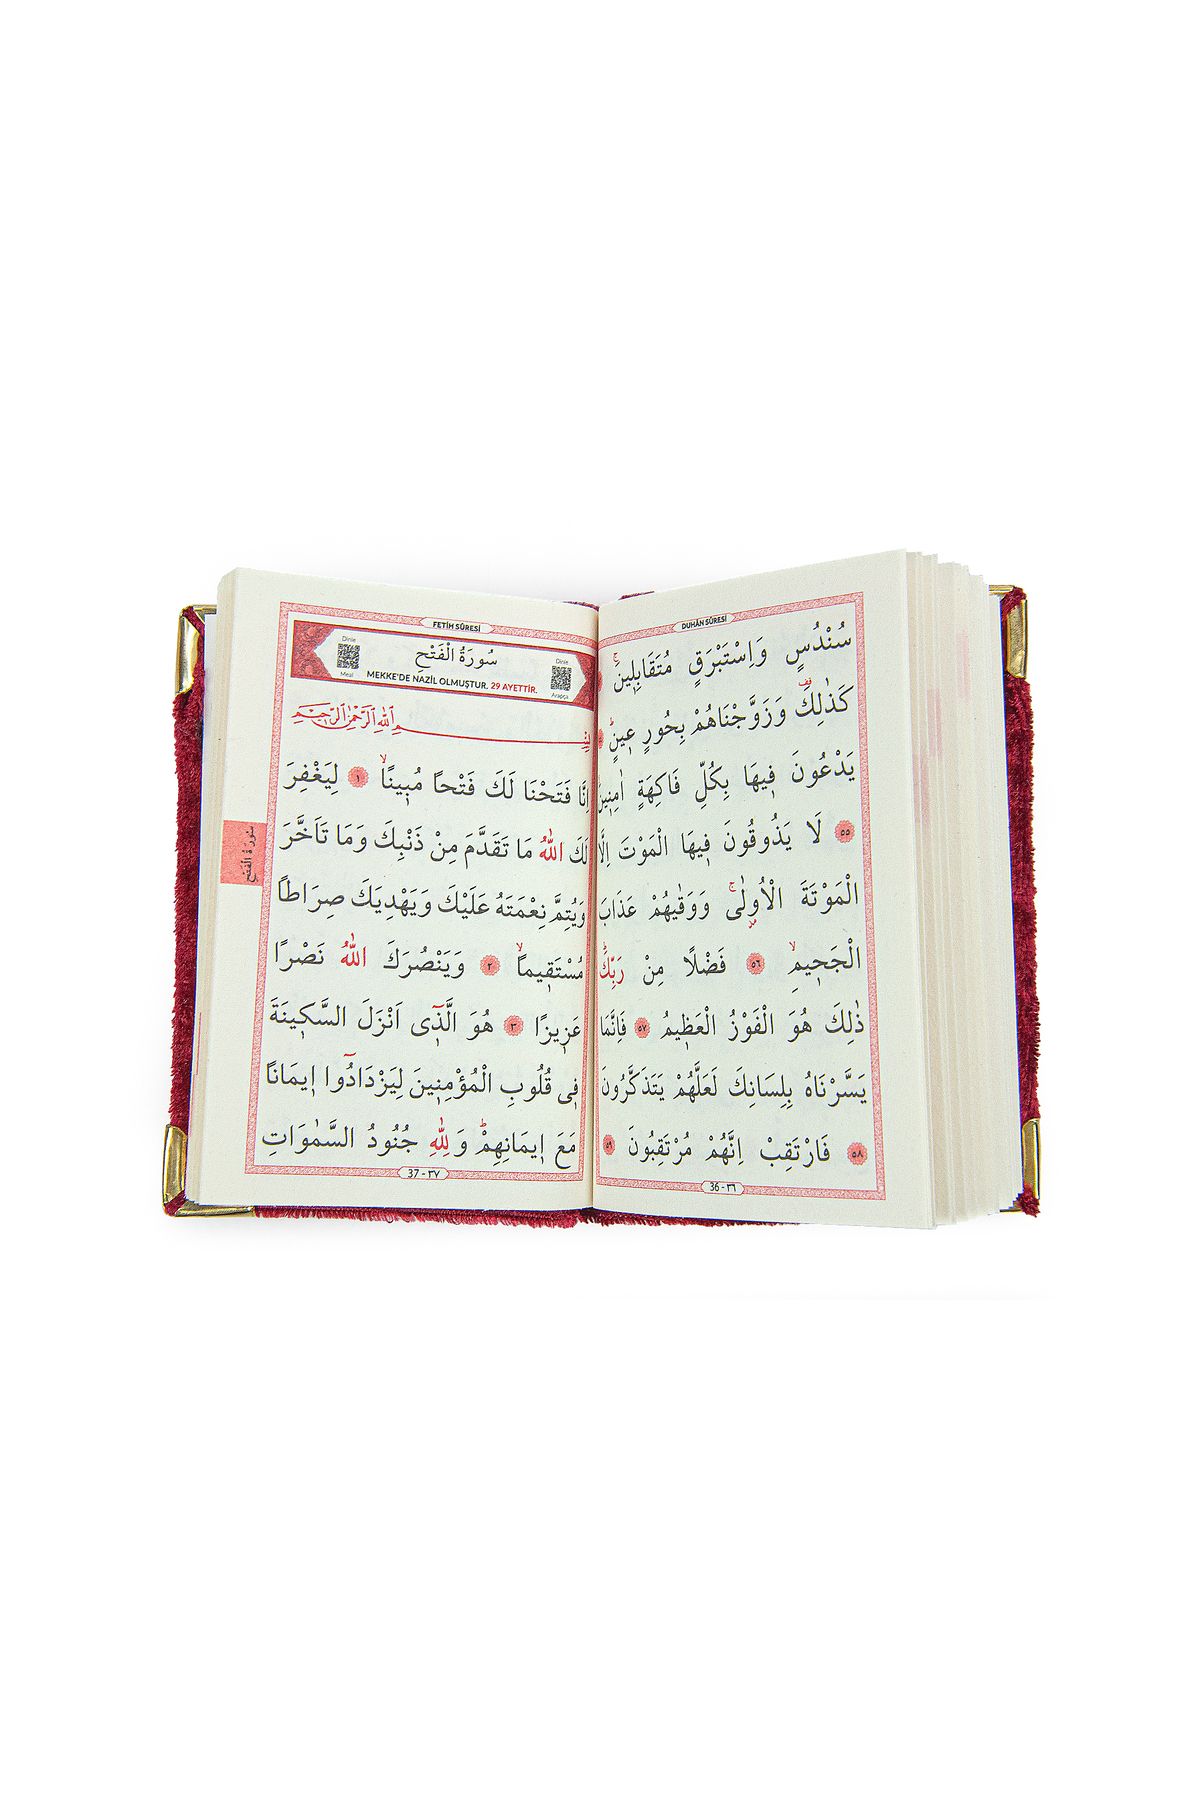 DUHÂN SÛRESİ
سُنْدُسٍ وَاِسْتَبْرَقٍ مُتَقَابِلِينَۚ
كَذٰلِكَ۠ وَزَوَّجْنَاهُمْ بِحُورٍ عِينٍۜ
يَدْعُونَ فِيهَا بِكُلِّ فَاكِهَةٍ اٰمِنِينَ
٥٥ لَا يَذُوقُونَ فِيهَا الْمَوْتَ اِلَّا
الْمَوْتَةَ الْاُولٰىۚ وَوَقٰيهُمْ عَذَابَ
الْجَحِيمِۙ ٥٦ فَضْلًا مِنْ رَبِّكَۜ
ذٰلِكَ هُوَ الْفَوْزُ الْعَظِيمُ ٥٧ فَاِنَّمَا
يَسَّرْنَاهُ بِلِسَانِكَ لَعَلَّهُمْ يَتَذَكَّرُونَ
٥٨ فَارْتَقِبْ اِنَّهُمْ مُرْتَقِبُونَ ٥٩
36 - ٣٦
FETİH SÛRESİ
Dinle
Meal
سُورَةُ الْفَتْحِ
MEKKE'DE NAZİL OLMUŞTUR. 29 AYETTİR.
Dinle
Arapça
بِسْمِ اللّٰهِ الرَّحْمٰنِ الرَّحِيمِ
اِنَّا فَتَحْنَا لَكَ فَتْحًا مُبِينًاۙ ١ لِيَغْفِرَ
لَكَ اللّٰهُ مَا تَقَدَّمَ مِنْ ذَنْبِكَ وَمَا تَاَخَّرَ
وَيُتِمَّ نِعْمَتَهُ عَلَيْكَ وَيَهْدِيَكَ صِرَاطًا
مُسْتَقِيمًاۙ ٢ وَيَنْصُرَكَ اللّٰهُ نَصْرًا
عَزِيزًا ٣ هُوَ الَّذِٓي اَنْزَلَ السَّكِينَةَ
فِي قُلُوبِ الْمُؤْمِنِينَ لِيَزْدَادُٓوا اِيمَانًا
مَعَ اِيمَانِهِمْۜ وَلِلّٰهِ جُنُودُ السَّمٰوَاتِ
37 - ٣٧
سُورَةُ الْفَتْحِ